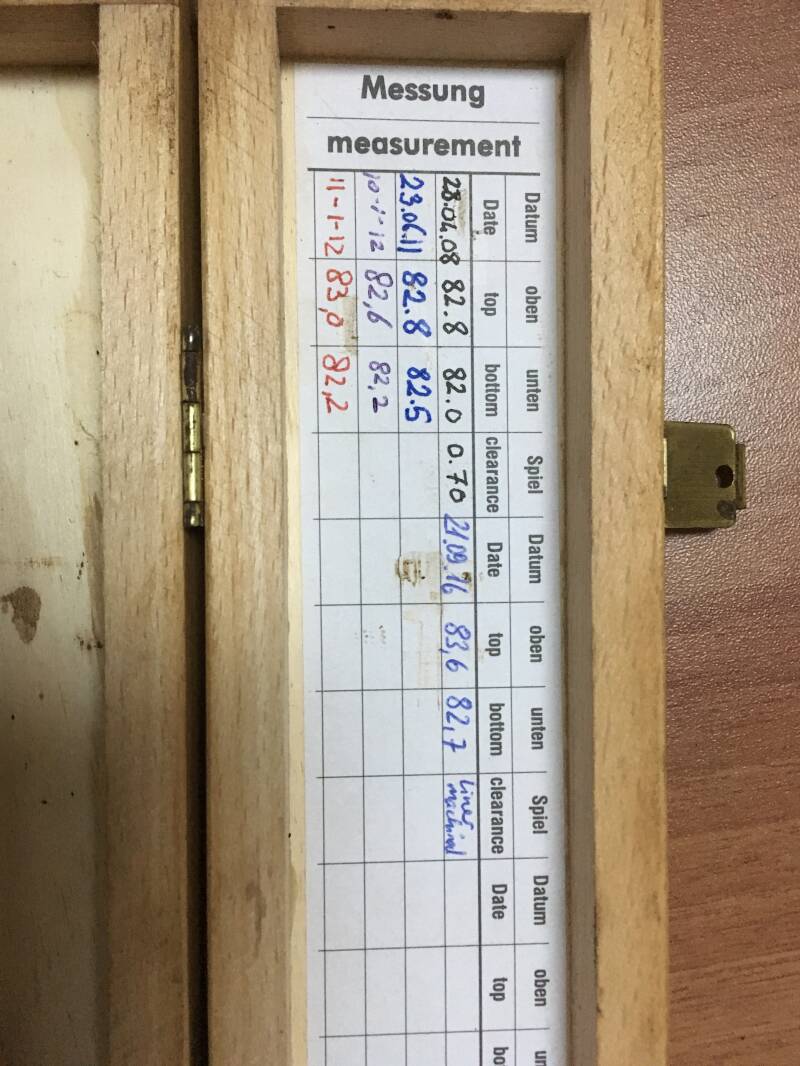 Messung
measurement
Datum oben unten Spiel Datum oben unten Spiel Datum oben un
Date top bottom clearance Date top bottom clearance Date top bo
28.04.08 82.8 82.0 0.70 21.09.16 83,6 82,7 Liner machined
23.06.11 82.8 82.5
10-1-12 82,6 82,2
11-1-12 83,0 82,2